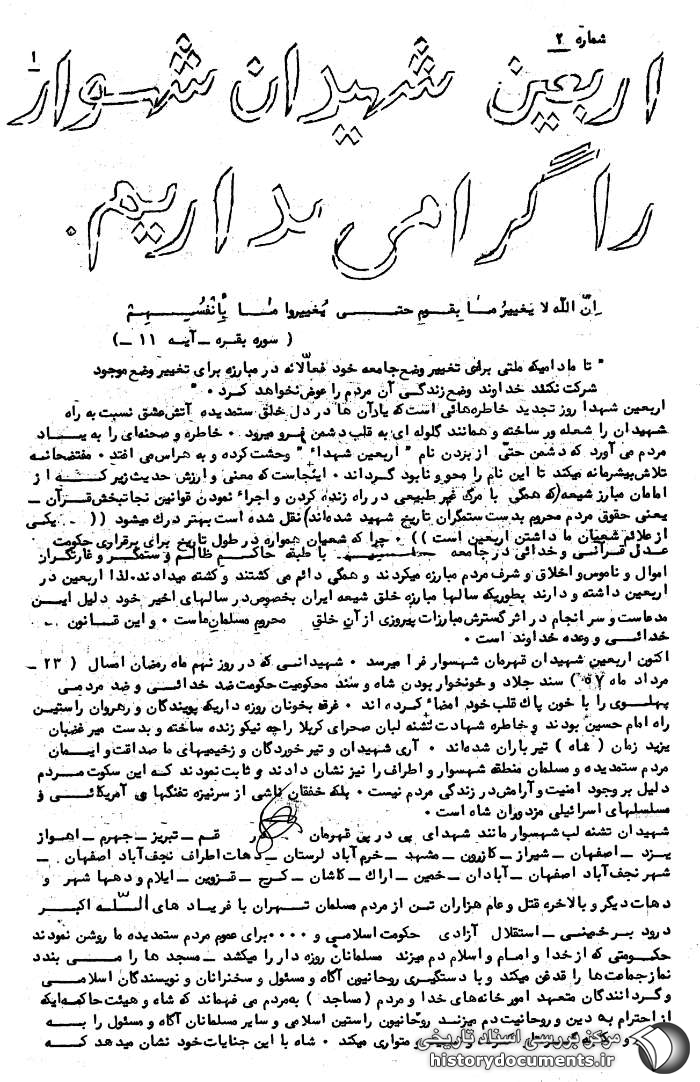 شماره ۲
۱
اربعین شهیدان شهسوار
را گرامی بداریم.
اِنّ اللّه لا یَغییرُ مـَا بِقـومِ حتـــی یُغییروا مٰا بِاَنْفُسِــهِمْ
( سوره بقره ــ آیـه ۱۱ ــ)
" تا مادامیکه ملتی برای تغییر وضع جامعه خود فعالانه در مبارزه برای تغییر وضع موجود
شرکت نکند خداوند وضع زندگی آن مردم را عوض نخواهد کرد ۰ "
اربعین شهدا روز تجدید خاطره‌هائی است که یاد آن ها در دل خلق ستمدیده آتش عشق نسبت به راه
شهیدان را شعله ور ساخته و همانند گلوله ای به قلب دشمن فرو میرود ۰ خاطره و صحنه‌ای را به یــاد
مردم می آورد که دشمن حتّی از بردن نام " اربعین شهداء " وحشت کرده و به هراس می افتد ۰ مفتضحانه
تلاش بیشرمانه میکند تا این نام را محو و نابود گرداند ۰ اینجاست که معنی و ارزش حدیث زیر کــه از
امامان مبارز شیعه(که همگی با مرگ غیر طبیعی در راه زنده کردن و اجراء نمودن قوانین نجاتبخش قرآن ــ
یعنی حقوق مردم محروم بدست ستمگران تاریخ شهید شده‌اند) نقل شده است بهتر درك میشود (( ۰ ــ یکـی
از علائم شیعیان ما داشتن اربعین است )) ۰ چرا که شیعیان همواره در طول تاریخ برای برقراری حکومت
عدل قرآنـی و خدائی در جامعه با طبقه حاکم ظالم و ستمگـر و غارتگران
اموال و ناموس و اخلاق و شرف مردم مبارزه میکردند و همگی دائم می کشتند و کشته میدادند. لذا اربعین در
اربعین داشته و دارند بطوریکه سالها مبارزه خلق شیعه ایران بخصوص در سالهای اخیر خود دلیل ایــن
مدعاست و سر انجام در اثر گسترش مبارزات پیروزی از آن خلق محروم مسلمان ماست ۰ و این قانــون
خدائــی و وعده خداوند است ۰
اکنون اربعین شهیدان قهرمان شهسوار فرا میرسد ۰ شهیدانـی که در روز نهم ماه رمضان امسال ( ۲۳ ــ
مرداد ماه ۵۷ ) سند جلاد و خونخوار بودن شاه و سند محکومیت حکومت ضد خدائـی و ضد مردمی
پهلـوی را با خون پاك قلب خود امضاء کـرده اند ۰ غرقه بخونان روزه داریکه پویندگان و رهروان راستین
راه امام حسین بودند و خاطره شهادت تشنه لبان صحرای کربلا را چه نیکو زنده ساخته و بدست میر غضبان
یزید زمان ( شاه ) تیر باران شده‌اند ۰ آری شهیدان و تیر خوردگان و زخمیهای ما صداقت و ایمــان
مردم ستمدیده و مسلمان منطقه شهسوار و اطراف را نیز نشان دادند و ثابت نمودند کـه این سکوت مــردم
دلیل بر وجود امنیت و آرامش در زندگی مردم نیست ۰ بلکه خفقان ناشی از سرنیزه تفنگهای آمریکائــی و
مسلسلهای اسرائیلی مزدوران شاه است ۰
شهیدان تشنه لب شهسوار مانند شهدای پی در پی قهرمان قـم ــ تبریز ــ جهرم ــ اهواز
یــزد ــ اصفهان ــ شیراز ــ کازرون ــ مشهد ــ خرم آباد لرستان ــ دهات اطراف نجف آباد اصفهان ــ
شهر نجف آباد اصفهان ــ آبادان ــ خمین ــ اراك ــ کاشان ــ کرج ــ قزوین ــ ایلام و دهها شهر و
دهات دیگر و بالاخره قتل و عام هزاران تـن از مردم مسلمان تهـران با فریـاد های الـلّـه اکبـر
درود بـر خمینـی ــ استقلال آزادی حکومت اسلامی و ۰۰۰۰ برای عموم مردم ستمدیده ما روشن نمودند
حکـومتی که از خدا و امام و اسلام دم میزند مسلمانان روزه دار را میکشد ــ مسجد ها را مــی بندد
نماز جماعت‌ها را قدغن میکند و با دستگیری روحانیون آگاه و مسئول و سخنرانان و نویسندگان اسلامــی
و گردانندگان متعهد امور خانه‌های خدا و مردم ( مساجد ) به مردم می فهماند که شاه و هیئت حاکمه‌ایکه
از احترام به دین و روحانیت دم میزند روحانیون راستین اسلامی و سایر مسلمانان آگاه و مسئول را بــه
متواری میکند ۰ شاه با این جنایات خود نشان میدهد کـه
مرکز بررسی اسناد تاریخی
historydocuments.ir